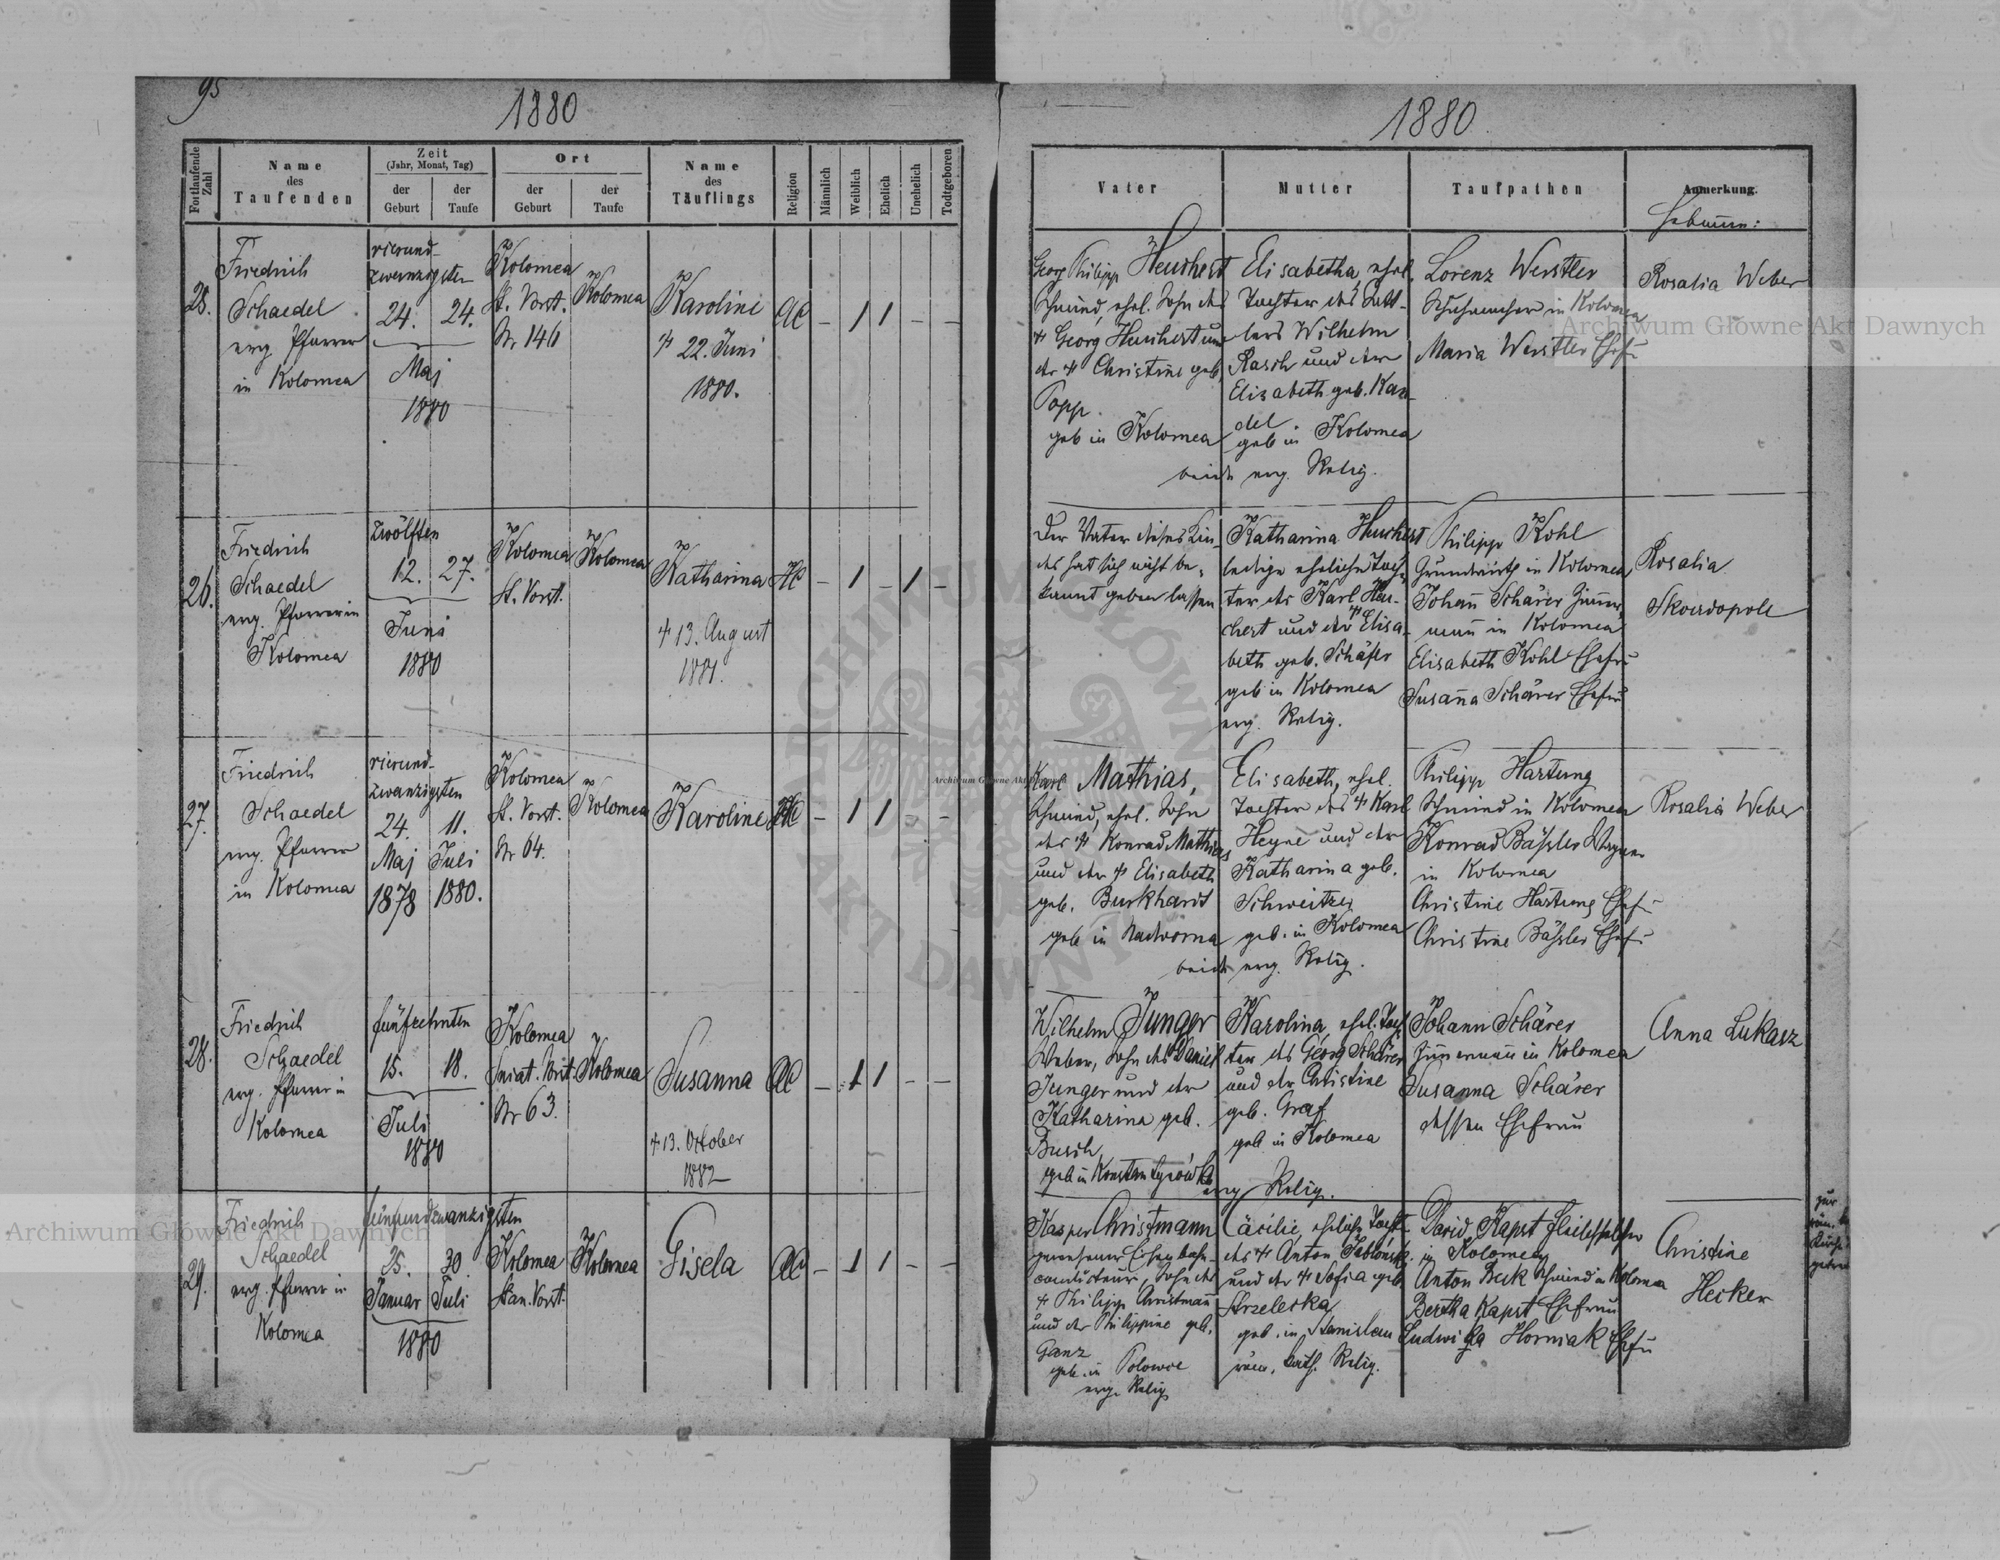 95
1880
1880
Fortlaufende Zahl
Name des Taufenden
Zeit
(Jahr, Monat, Tag)
der Geburt
der Taufe
Ort
der Geburt
der Taufe
Name des Täuflings
Religion
Männlich
Weiblich
Ehelich
Unehelich
Todtgeboren
Vater
Mutter
Taufpathen
Anmerkung.
Hebamme:
Friedrich
Schaedel
evg. Pfarrer
in Kolomea
vierund-
zwanzigsten
24. 24.
Maj
1880
Kolomea
St. Vorst.
Nr 146
Kolomea
Karoline
† 22. Juni
1880.
AC – 1 1 – –
Georg Philipp Heuchert
Schmied, ehel. Sohn des
† Georg Heuchert und
der † Christine geb.
Popp.
geb in Kolomea
Elisabetha, ehel.
Tochter des Satt-
lers Wilhelm
Rasch und der
Elisabeth geb. Kan-
del
geb in Kolomea
beide evg. Relig.
Lorenz Werstler
Schuhmacher in Kolomea
Maria Werstler Ehefr
Rosalia Weber
26.
Friedrich
Schaedel
evg. Pfarrer in
Kolomea
zwölften
12. 27.
Juni
1880
Kolomea
St. Vorst.
Kolomea
Katharina
† 13. August
1881.
AC – 1 – 1 –
Der Vater dieses Kin-
des hat sich nicht be-
kannt geben lassen
Katharina Heuchert
ledige eheliche Toch-
ter des Karl Heu-
chert und der † Elisa-
beth geb. Schäfer
geb in Kolomea
evg. Relig.
Philipp Kohl
Grundwirth in Kolomea
Johann Schärer Zimmer
mann in Kolomea
Elisabeth Kohl Ehefr
Susanna Schärer Ehefr
Rosalia
Skowdopole
27.
Friedrich
Schaedel
evg. Pfarrer
in Kolomea
vierund-
zwanzigsten
24. 11.
Maj Juli
1878 1880.
Kolomea
St. Vorst.
Nr 64.
Kolomea
Karoline
AC – 1 1 – –
Karl Mathias,
Schmied, ehel. Sohn
des † Konrad Mathias
und der † Elisabeth
geb. Burkhardt
geb in Nadworna
Elisabeth, ehel.
Tochter des † Karl
Heyne und der
Katharina geb.
Schweitzer
geb. in Kolomea
beide evg. Relig.
Philipp Hartung
Schmied in Kolomea
Konrad Bäßler Wagner
in Kolomea
Christine Hartung Ehefr
Christine Bäßler Ehefr
Rosalia Weber
28.
Friedrich
Schaedel
evg. Pfarrer in
Kolomea
fünfzehnten
15. 18.
Juli
1880
Kolomea
Sniat. Vorst.
Nr 63.
Kolomea
Susanna
† 13. October
1882
AC – 1 1 – –
Wilhelm Junger
Weber, Sohn des Daniel
Junger und der
Katharina geb.
Busch
geb in
Karolina, ehel. Toch
ter des Georg Schärer
und der Christine
geb. Graf
geb in Kolomea
evg Relig.
Johann Schärer
Zimmermann in Kolomea
Susanna Schärer
dessen Ehefrau
Anna Lukasz
29.
Friedrich
Schaedel
evg. Pfarrer in
Kolomea
fünfundzwanzigsten
25. 30
Januar Juli
1880
Kolomea
Stan. Vorst.
Kolomea
Gisela
AC – 1 1 – –
Kasper Christmann
gewesener Eisenbahn-
conducteur, Sohn des
† Philipp Christmann
und der Philippine geb.
Ganz
geb. in
evg. Relig
Cäcilie, eheliche Tochter
des † Anton Jabłońsk
und der † Sofia geb
Strzelecka
geb. in Stanislau
röm. kath. Relig.
David Kapst Fleischselcher
in Kolomea
Anton Beck Schmied in Kolomea
Bertha Kapst Ehefrau
Ludwika Horniak Ehefr
Christine
Hecker
zur
Archiwum Główne Akt Dawnych
Archiwum Główne Akt Dawnych
Archiwum Główne Akt Dawnych
ARCHIWUM GŁÓWNE AKT DAWNYCH